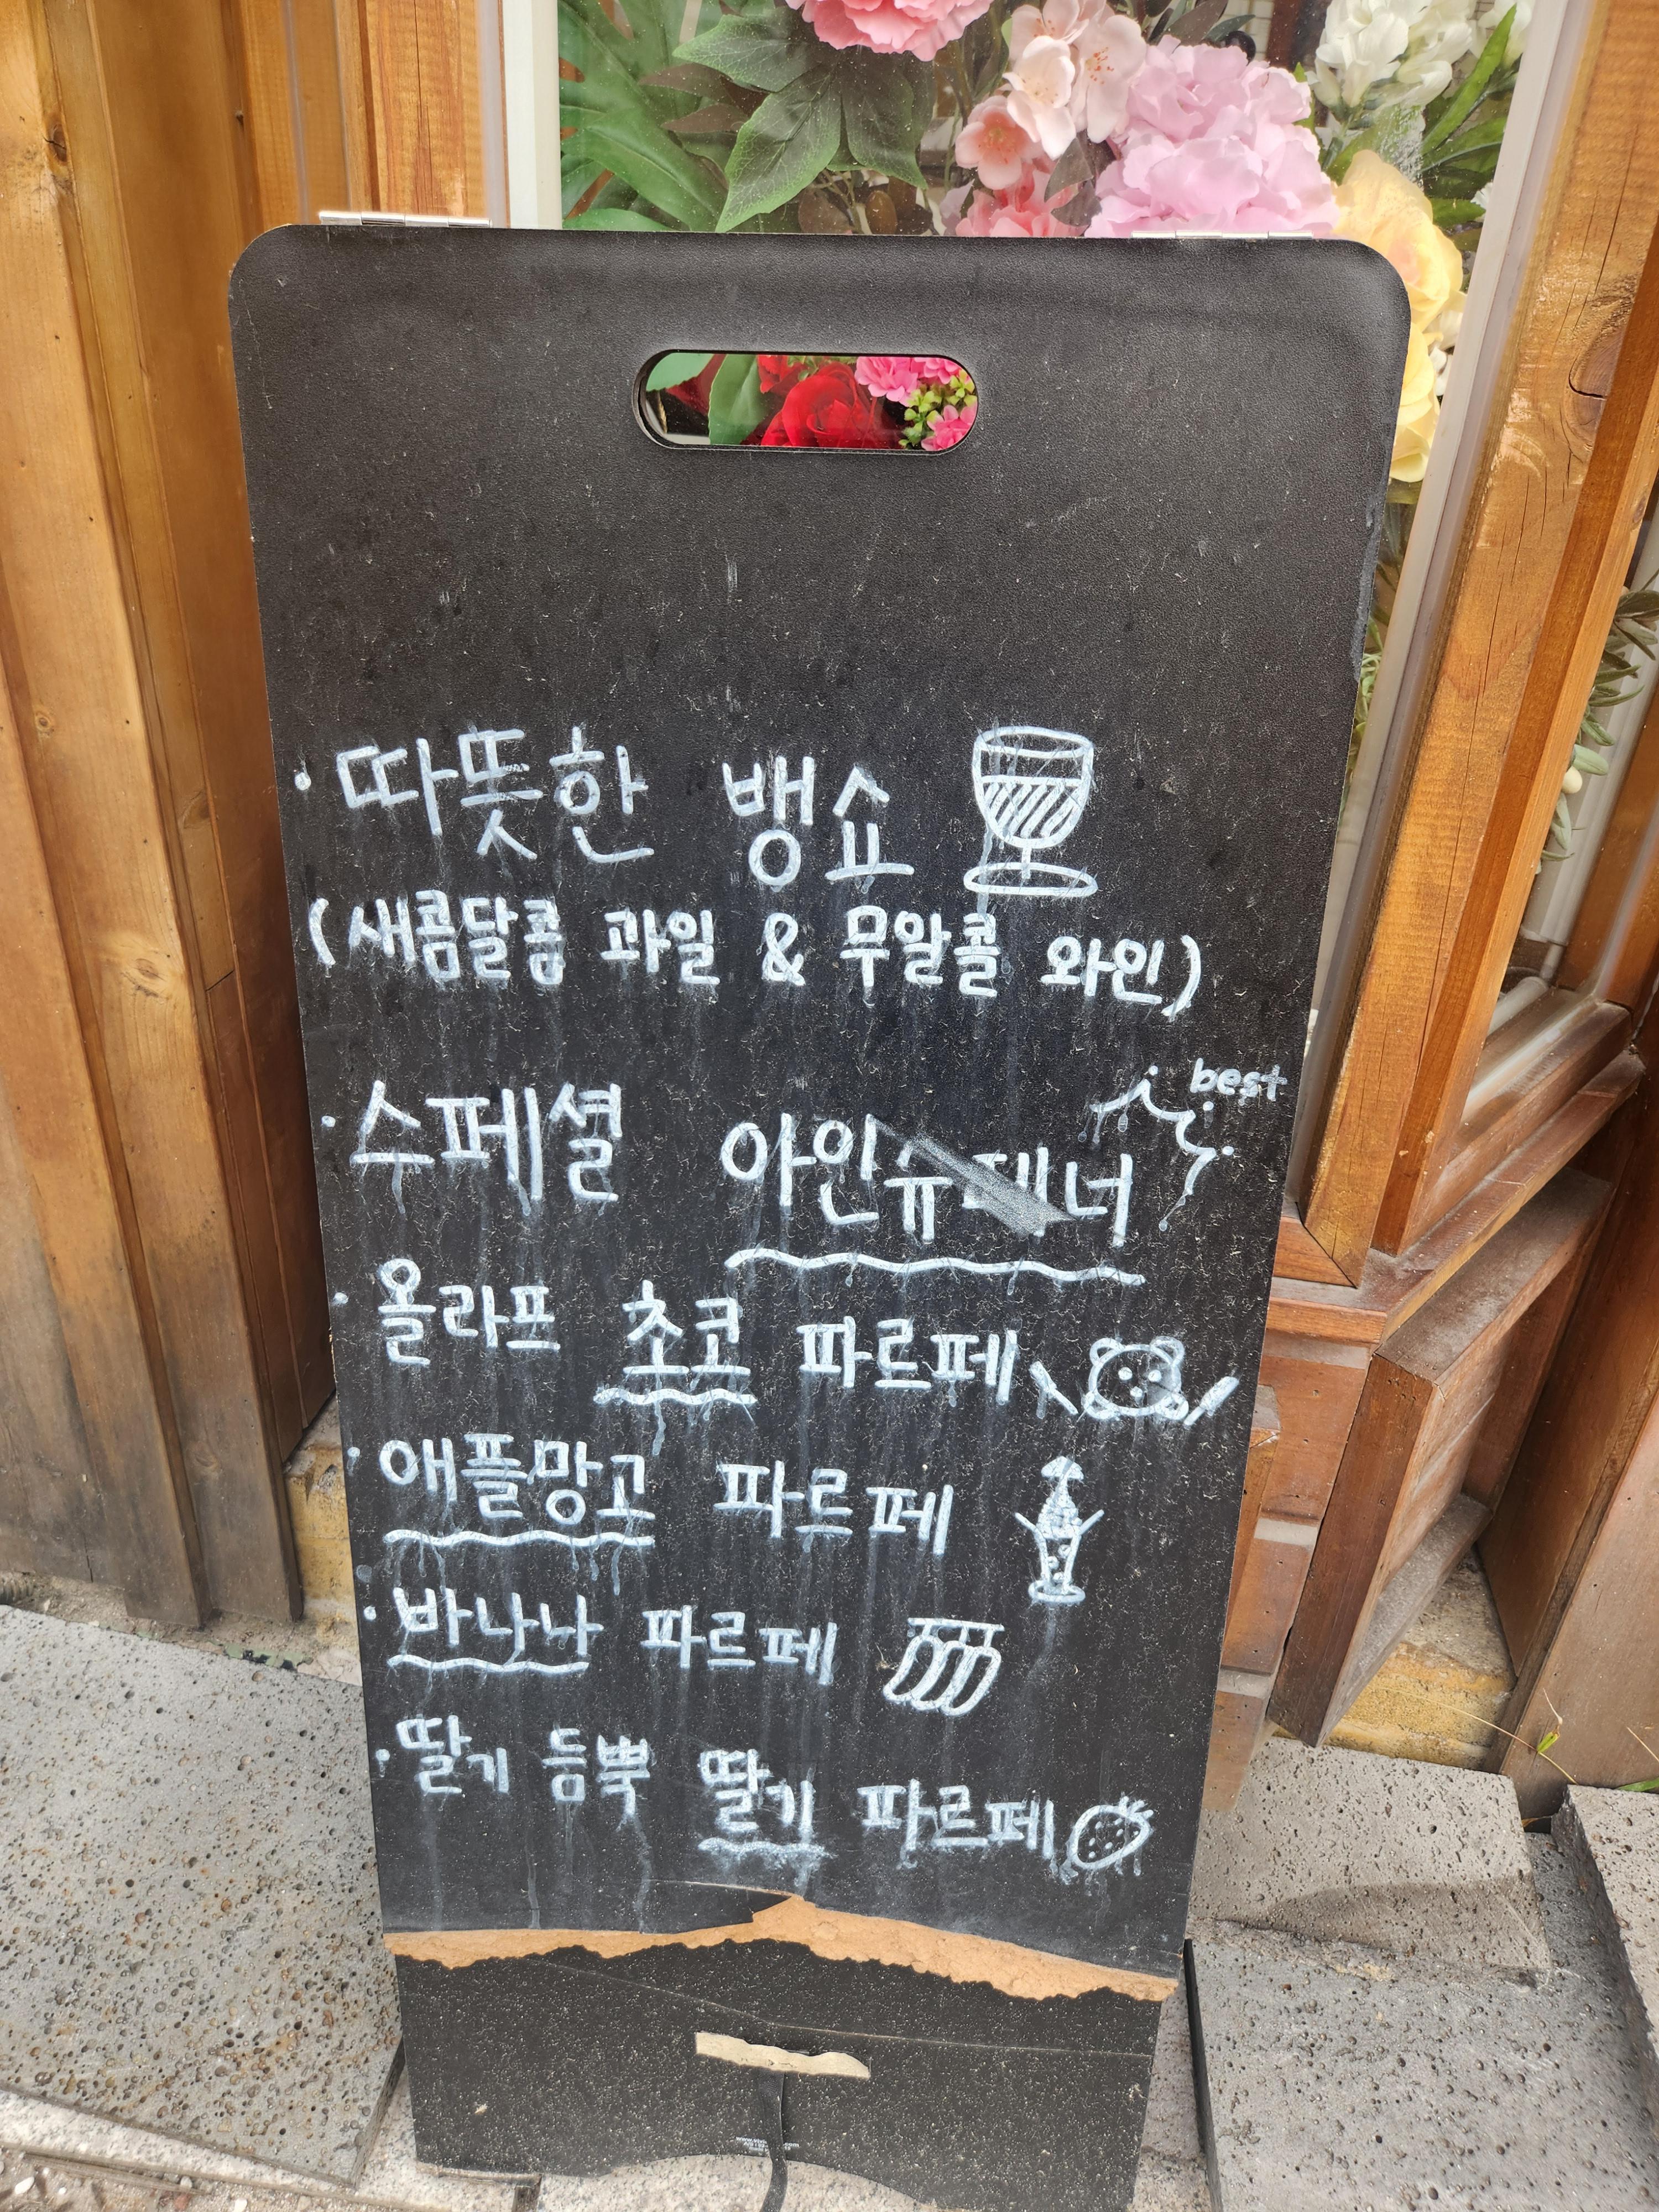 · 따뜻한 뱅쇼
(새콤달콤 과일 & 무알콜 와인)
best
· 수페셜 아인슈페너
· 올라프 초코 파르페
· 애플망고 파르페
· 바나나 파르페
· 딸기 듬뿍 딸기 파르페